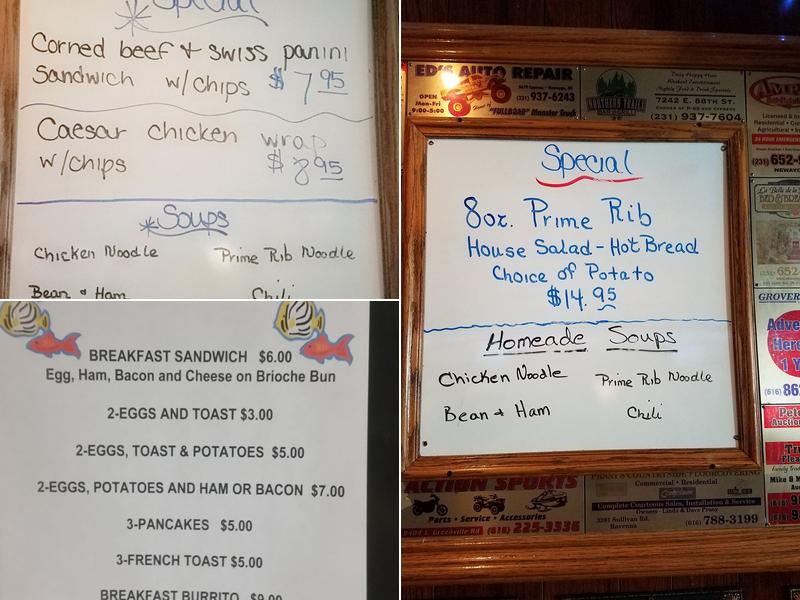 Special
Corned beef & swiss panini
Sandwich w/chips $7.95
Caesar chicken wrap
w/chips $8.95
Soups
Chicken Noodle Prime Rib Noodle
Bean & Ham Chili
BREAKFAST SANDWICH $6.00
Egg, Ham, Bacon and Cheese on Brioche Bun
2-EGGS AND TOAST $3.00
2-EGGS, TOAST & POTATOES $5.00
2-EGGS, POTATOES AND HAM OR BACON $7.00
3-PANCAKES $5.00
3-FRENCH TOAST $5.00
BREAKFAST BURRITO $9.00
ED'S AUTO REPAIR
OPEN
Mon-Fri
9:00-5:00
(231) 937-6243
"FULLBOAR" Monster Truck
NORTHERN TRAILS
Daily Happy Hour
Nightly Food & Drink Specials
7242 E. 88TH ST.
(231) 937-7604
(231) 652-
Special
8oz. Prime Rib
House Salad - Hot Bread
Choice of Potato
$14.95
Homeade Soups
Chicken Noodle Prime Rib Noodle
Bean & Ham Chili
ACTION SPORTS
Parts • Service • Accessories
(616) 225-3336
Commercial • Residential
Complete Courteous Sales, Installation & Service
Owners - Linda & Dave Prony
3281 Sullivan Rd.
Ravenna
(616) 788-3199